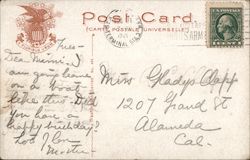 Post Card.
(CARTE POSTALE UNIVERSELLE)
TERMINAL STA
Tues-
Dear Mimi:- I
am going leave
on a boat
like this. Did
you have a
happy birthday?
Lots Love
Mother
Miss Gladys Clapp
1207 Grand St
Alameda
Cal.